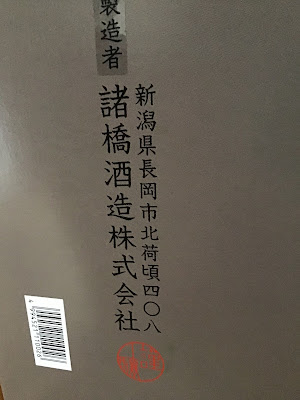 製造者
諸橋酒造株式会社
新潟県長岡市北荷頃四〇八